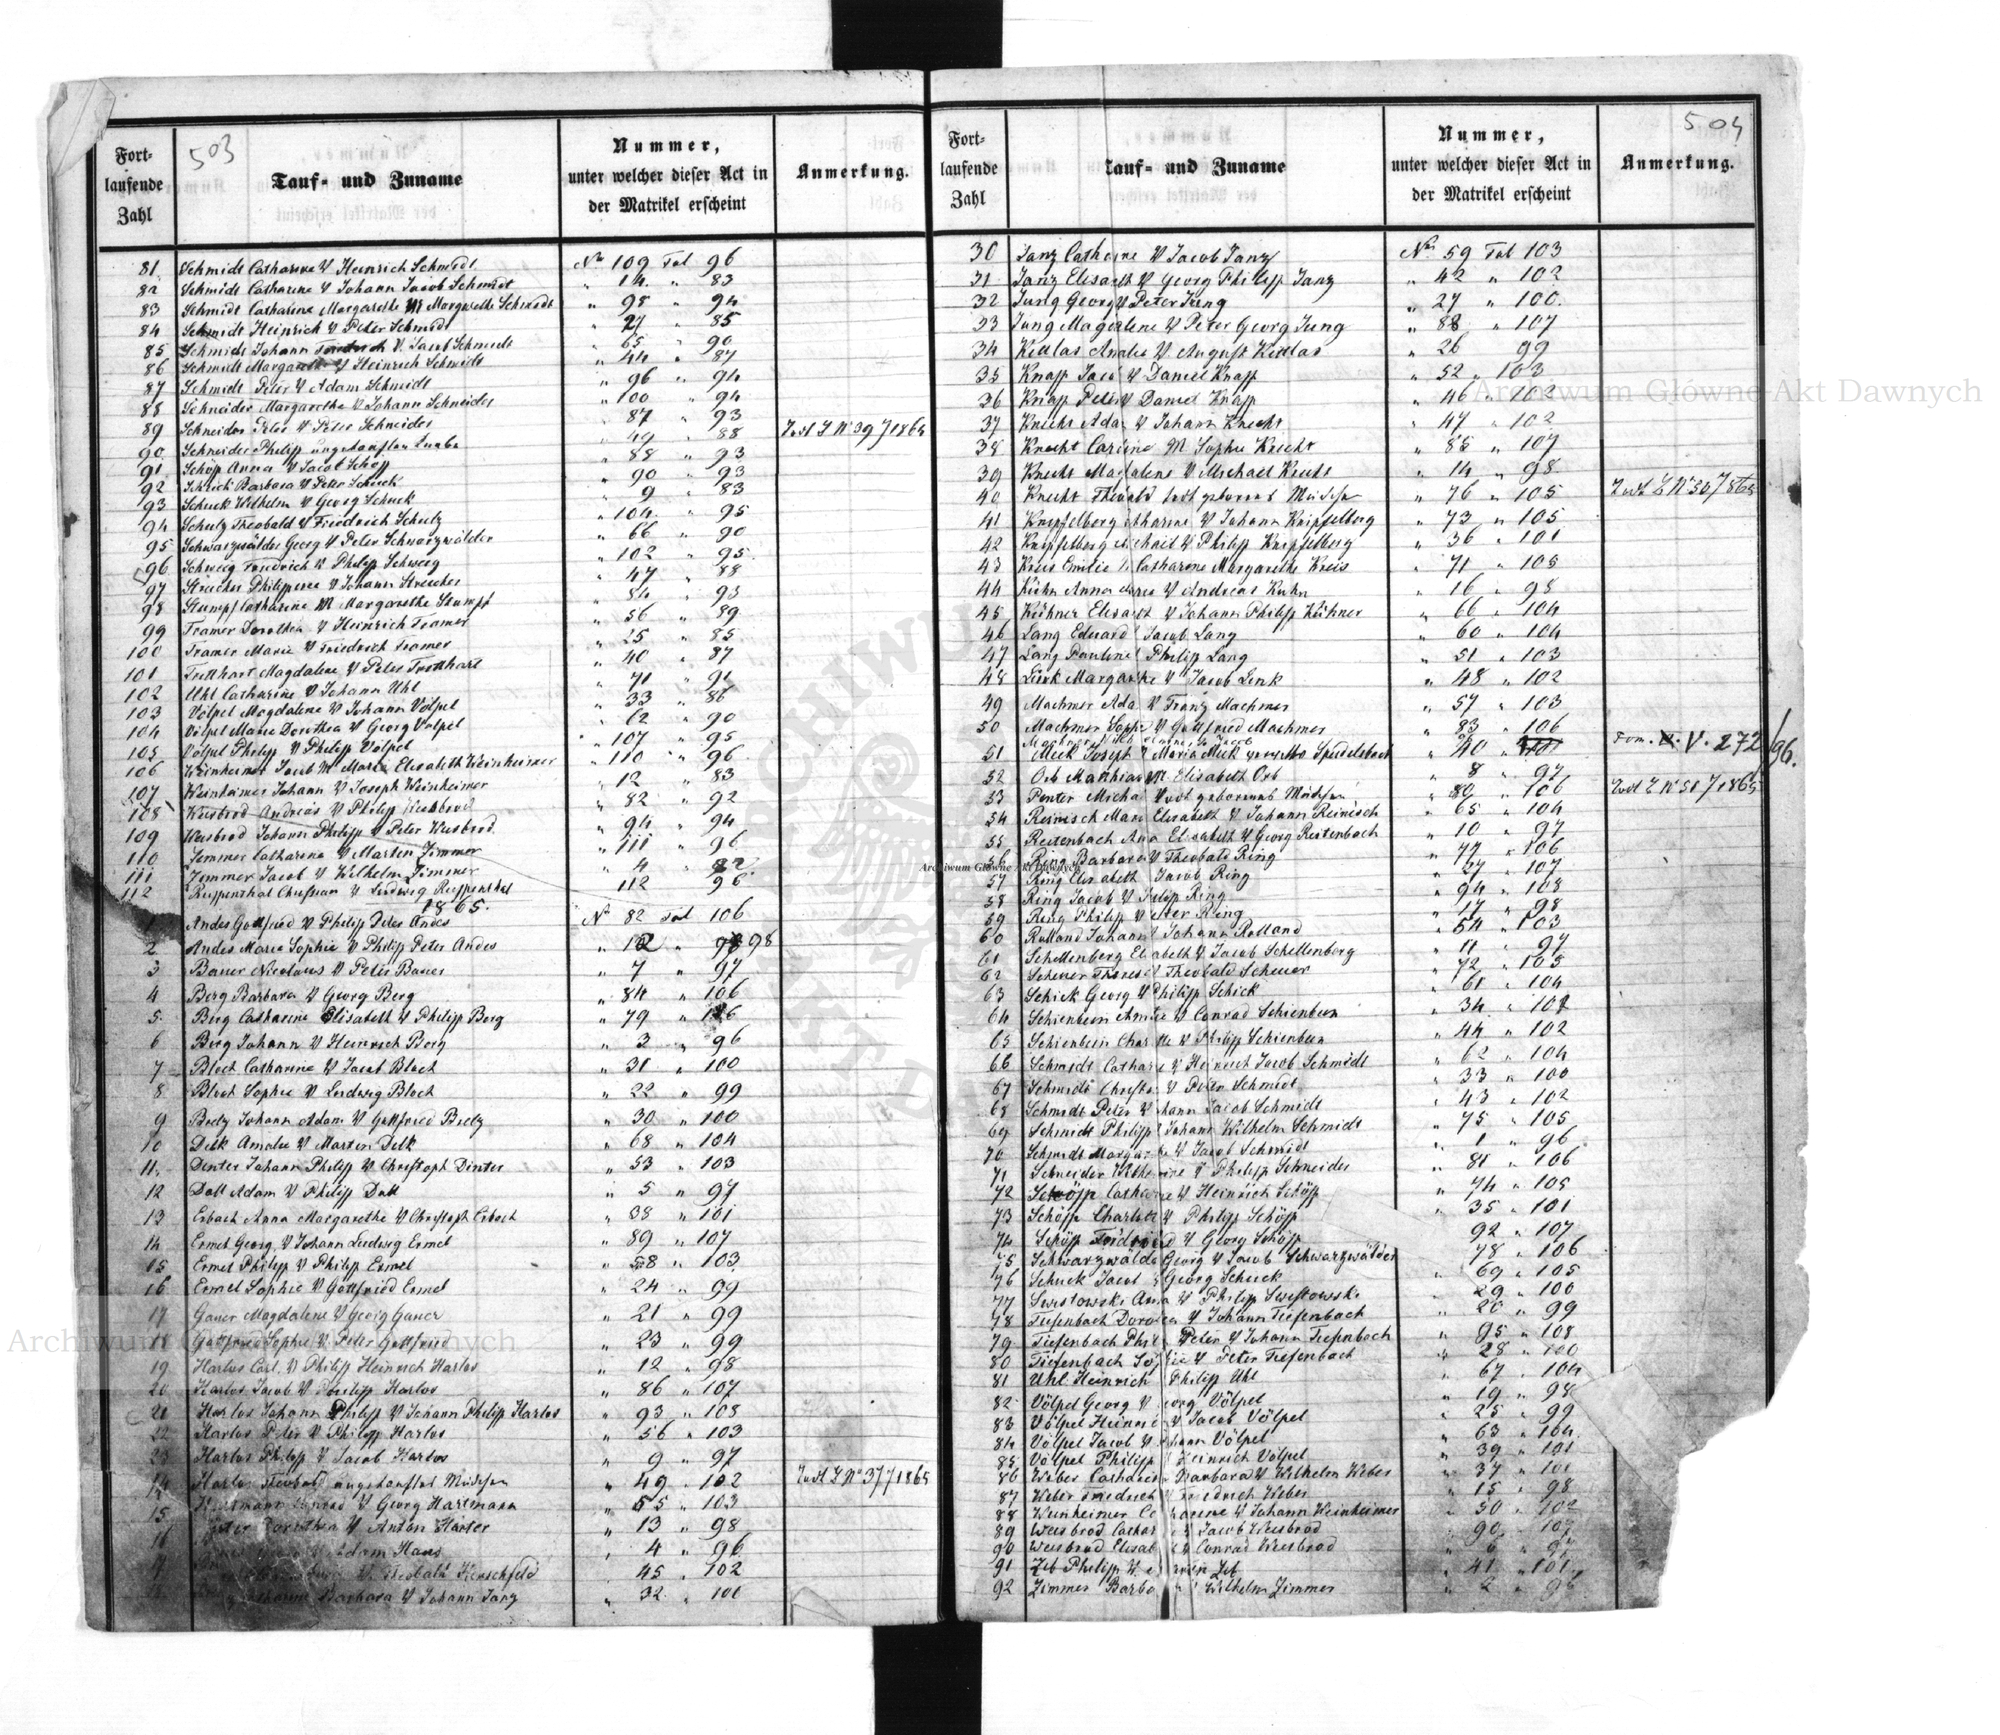 503
Fort-
laufende
Zahl
Tauf- und Zuname
Nummer,
unter welcher dieser Act in
der Matrikel erscheint
Anmerkung.
81 Schmidt Catharina V Heinrich Schmidt No 109 Fol 96
82 Schmidt Catharine V Johann Jacob Schmidt " 14. " 83
83 Schmidt Catharine Margarethe M Margarethe Schmidt " 98 " 94
84 Schmidt Heinrich V Peter Schmidt " 27 " 85
85 Schmidt Johann Friedrich V. Jacob Schmidt " 65 " 90
86 Schmidt Margarethe V Heinrich Schmidt " 44 " 87
87 Schmidt Peter V Adam Schmidt " 96 " 94
88 Schneider Margarethe V Johann Schneider " 100 " 94
89 Schneider Peter V Peter Schneider " 87 " 93
90 Schneider Philipp ungetaufter Knabe " 49 " 88 Todt Z No 39/1864
91 Schöpp Anna V Jacob Schöpp " 88 " 93
92 Schück Barbara V Peter Schück " 90 " 93
93 Schuck Wilhelm V Georg Schuck " 9 " 83
94 Schulz Theobald V Friedrich Schulz " 104 " 95
95 Schwarzwälder Georg V Peter Schwarzwälder " 66 " 90
96 Schweig Friedrich V Philipp Schweig " 102 " 95
97 Streicher Philippine V Johann Streicher " 47 " 88
98 Stumpf Catharine M Margarethe Stumpf " 84 " 93
99 Tramer Dorothea V Heinrich Tramer " 56 " 89
100 Tramer Marie V Friedrich Tramer " 25 " 85
101 Trotthart Magdalene V Peter Trotthart " 40 " 87
102 Uhl Catharine V Johann Uhl " 71 " 91
103 Völpel Magdalene V Johann Völpel " 33 " 86
104 Völpel Marie Dorothea V Georg Völpel " 62 " 90
105 Völpel Philipp V Philipp Völpel " 107 " 95
106 Weinheimer Jacob M Marie Elisabeth Weinheimer " 110 " 96
107 Weinheimer Johann V Joseph Weinheimer " 12 " 83
108 Weisbrod Andreas V Philipp Weisbrod " 82 " 92
109 Weisbrod Johann Philipp V Peter Weisbrod " 94 " 94
110 Zimmer Catharina V Martin Zimmer " 111 " 96
111 Zimmer Jacob V Wilhelm Zimmer " 4 " 82
112 Rieppenthal Christian V Ludwig Rieppenthal 112 96
1865.
1 Andes Gottfried V Philipp Peter Andes No 82 Fol 106
2 Andes Marie Sophie V Philipp Peter Andes " 12 " 98
3 Bauer Nicolaus V Peter Bauer " 7 " 97
4 Berg Barbara V Georg Berg " 84 " 106
5 Berg Catharine Elisabeth V Philipp Berg " 79 " 106
6 Berg Johann V Heinrich Berg " 3 " 96
7 Bloch Catharine V Jacob Bloch " 31 " 100
8 Bloch Sophie V Ludwig Bloch " 22 " 99
9 Bretz Johann Adam V Gottfried Bretz " 30 " 100
10 Delk Amalie V Martin Delk " 68 " 104
11. Dinter Johann Philipp V Christoph Dinter " 53 " 103
12 Doll Adam V Philipp Doll " 5 " 97
13 Erbach Anna Margarethe V Christoph Erbach " 38 " 101
14 Ermel Georg V Johann Ludwig Ermel " 89 " 107
15 Ermel Philipp V Philipp Ermel " 58 " 103
16 Ermel Sophie V Gottfried Ermel " 24 " 99
17 Gauer Magdalene V Georg Gauer " 21 " 99
18 Gottfried Sophie V Peter Gottfried " 23 " 99
19 Harlos Carl V Philipp Heinrich Harlos " 12 " 98
20 Harlos Jacob V Philipp Harlos " 86 " 107
21 Harlos Johann Philipp V Johann Philipp Harlos " 93 " 108
22 Harlos Peter V Philipp Harlos " 56 " 103
23 Harlos Philipp V Jacob Harlos " 9 " 97
Harlos Theobald ungetauftes Mädchen " 49 " 102 Todt Z No 37/1865
Hartmann Conrad V Georg Hartmann " 55 " 103
Dorothea V Anton Harter " 13 " 98
V Adam Haus " 4 " 96
V Theobald Hirschfeld " 45 " 102
Catharine Barbara V Johann Janz " 32 " 100
504
Fort-
laufende
Zahl
Tauf- und Zuname
Nummer,
unter welcher dieser Act in
der Matrikel erscheint
Anmerkung.
30 Janz Catharine V Jacob Janz No 59 Fol 103
31 Janz Elisabeth V Georg Philipp Janz " 42 " 102
32 Jung Georg V Peter Jung " 27 " 100.
33 Jung Magdalene V Peter Georg Jung " 88 " 107
34 Kidlas Amalie V August Kidlas " 26 99
35 Knapp Jacob V Daniel Knapp " 52 " 103
36 Knapp Peter V Daniel Knapp " 46 " 102
37 Knecht Adam V Johann Knecht " 47 " 102
38 Knecht Carline M Sophie Knecht " 85 " 107
39 Knecht Magdalene V Michael Knecht " 14 " 98
40 Knecht Theobald todt geborenes Mädchen " 76 " 105 Todt Z No 50/865
41 Knipfelberg Catharine V Johann Knipfelberg " 73 " 105
42 Knipfelberg Michael V Philipp Knipfelberg " 36 " 101
43 Kreis Emilie V Catharine Margarethe Kreis " 71 " 105
44 Kuhn Anna Maria V Andreas Kuhn " 16 " 98
45 Kühner Elisabeth V Johann Philipp Kühner " 66 " 104
46 Lang Eduard V Jacob Lang " 60 " 104
47 Lang Pauline V Philipp Lang " 51 " 103
48 Link Margarethe V Jacob Link " 48 " 102
49 Machmer Adam V Franz Machmer " 57 " 103
50 Machmer Sophie V Gottfried Machmer " 83 " 106
51 Mück Joseph V Maria Mück " 40 " 101 Fom. V. 272/96.
52 Orb Matthias M Elisabeth Orb " 8 " 97
53 Penter Michael todt geborenes Mädchen " 80 " 106 Todt Z No 51/1865
54 Reinisch Marie Elisabeth V Johann Reinisch " 65 " 104
55 Reitenbach Anna Elisabeth V Georg Reitenbach " 10 " 97
56 Ring Barbara V Theobald Ring " 77 " 106
57 Ring Elisabeth V Jacob Ring " 87 " 107
58 Ring Jacob V Philipp Ring " 94 " 108
59 Ring Philipp V Peter Ring " 17 " 98
60 Rolland Johann V Johann Rolland " 54 " 103
61 Schellenberg Elisabeth V Jacob Schellenberg " 11 " 97
62 Scheuer Therese V Theobald Scheuer " 72 " 105
63 Schick Georg V Philipp Schick " 61 " 104
64 Schienbein Amalie V Conrad Schienbein " 34 " 101
65 Schienbein Charlotte V Philipp Schienbein " 44 " 102
66 Schmidt Catharine V Heinrich Jacob Schmidt " 62 " 104
67 Schmidt Christian V Peter Schmidt " 33 " 100
68 Schmidt Peter V Johann Jacob Schmidt " 43 " 102
69 Schmidt Philipp V Johann Wilhelm Schmidt " 75 " 105
70 Schmidt Margarethe V Jacob Schmidt " 1 " 96
71 Schneider Catharine V Philipp Schneider " 81 " 106
72 Schöpp Catharine V Heinrich Schöpp " 74 " 105
73 Schöpp Charlotte V Philipp Schöpp " 35 " 101
74 Schöpp Friedrich V Georg Schöpp 92 " 107
75 Schwarzwälder Georg V Jacob Schwarzwälder " 78 " 106
76 Schuck Jacob V Georg Schuck " 69 " 105
77 Swistowski Anna V Philipp Swistowski " 29 " 100
78 Tiefenbach Dorothea V Johann Tiefenbach " 20 " 99
79 Tiefenbach Philipp Peter V Johann Tiefenbach " 95 " 108
80 Tiefenbach Sophie V Peter Tiefenbach " 28 " 100
81 Uhl Heinrich V Philipp Uhl " 67 " 104
82 Völpel Georg V Georg Völpel " 19 " 98
83 Völpel Heinrich V Jacob Völpel " 25 " 99
84 Völpel Jacob V Johann Völpel " 63 " 104
85 Völpel Philipp V Heinrich Völpel " 39 " 101
86 Weber Catharine Barbara V Wilhelm Weber " 37 " 101
87 Weber Friedrich V Friedrich Weber " 15 " 98
88 Weinheimer Catharine V Johann Weinheimer " 50 " 102
89 Weisbrod Catharine V Jacob Weisbrod " 90 " 107
90 Weisbrod Elisabeth V Conrad Weisbrod " 6 " 97
91 Zeb Philipp V Zeb " 41 " 101
92 Zimmer Barbara V Wilhelm Zimmer " 2 " 96
Archiwum Główne Akt Dawnych
Archiwum Główne Akt Dawnych
Archiwum Główne Akt Dawnych